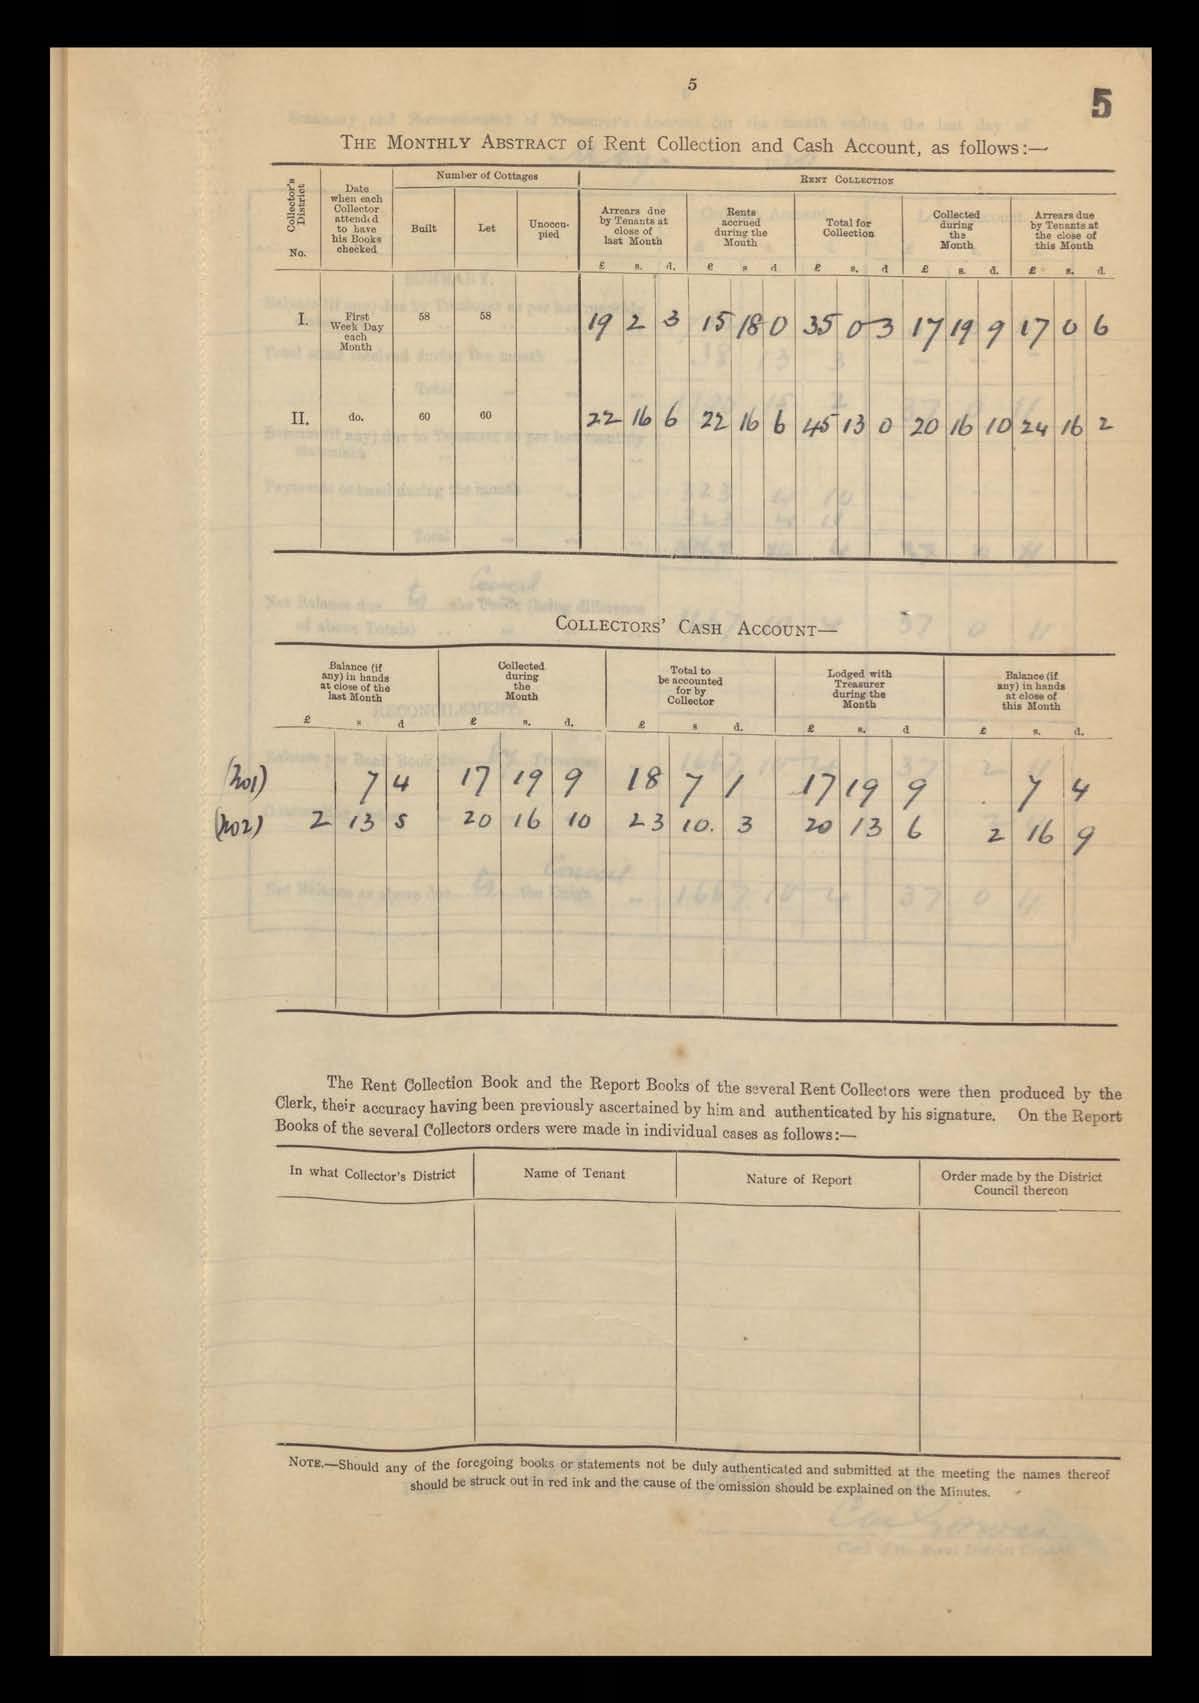 5
5
THE MONTHLY ABSTRACT of Rent Collection and Cash Account, as follows:—
Collector's District No.
Date when each Collector attended to have his Books checked
Number of Cottages
Built
Let
Unoccupied
RENT COLLECTION
Arrears due by Tenants at close of last Month
Rents accrued during the Month
Total for Collection
Collected during the Month
Arrears due by Tenants at the close of this Month
£ s. d. £ s d £ s. d £ s. d. £ s. d.
I. First Week Day each Month 58 58 19 2 3 15 18 0 35 0 3 17 19 9 17 0 6
II. do. 60 60 22 16 6 22 16 6 45 13 0 20 16 10 24 16 2
COLLECTORS' CASH ACCOUNT—
Balance (if any) in hands at close of the last Month
Collected during the Month
Total to be accounted for by Collector
Lodged with Treasurer during the Month
Balance (if any) in hands at close of this Month
£ s d £ s. d. £ s d. £ s. d £ s. d.
(No1) 7 4 17 19 9 18 7 1 17 19 9 7 4
(No2) 2 13 5 20 16 10 23 10. 3 20 13 6 2 16 9
The Rent Collection Book and the Report Books of the several Rent Collectors were then produced by the
Clerk, their accuracy having been previously ascertained by him and authenticated by his signature. On the Report
Books of the several Collectors orders were made in individual cases as follows:—
In what Collector's District
Name of Tenant
Nature of Report
Order made by the District Council thereon
NOTE.—Should any of the foregoing books or statements not be duly authenticated and submitted at the meeting the names thereof
should be struck out in red ink and the cause of the omission should be explained on the Minutes.